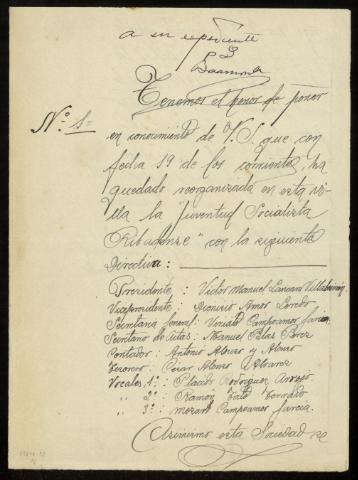 a su expediente
Baamonde
Tenemos el honor de poner
Nº 1=
en conocimiento de V.S. que con
fecha 19 de los corrientes, ha
quedado reorganizada en esta vi-
lla la "Juventud Socialista
Ribadense" con la siguiente
Directiva:
Presidente: Victor Manuel Lanzan
Vicepresidente: Dionisio Amor Loredo
Secretario General: Campoamor García
Secretario de Actas: Manuel Pérez
Contador: Antonio Alonso y Alonso
Tesorero: Cesar Alonso Alvarez
Vocales 1º: Placido Rodriguez Arrojo.
" 2º: Ramon
" 3º: Campoamor García.
Asimismo esta Sociedad se